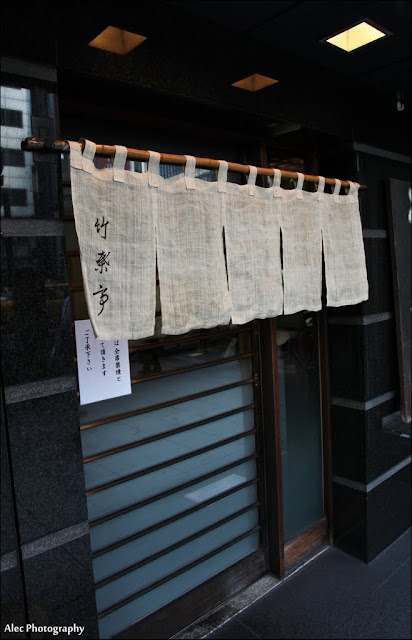 竹葉亭
は 全席禁煙と
て頂きます
ご了承下さい
Alec Photography